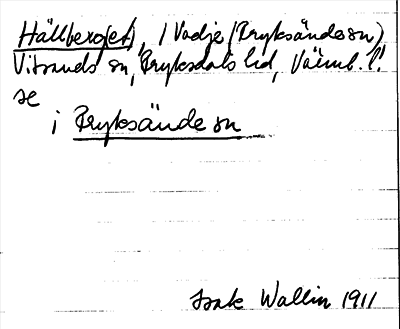 Hällberg(et), i Vadje (Fryksände sn)
Vitsands sn, Fryksdals hd, Värml. l.
se
i Fryksände sn
Isak Wallin 1911